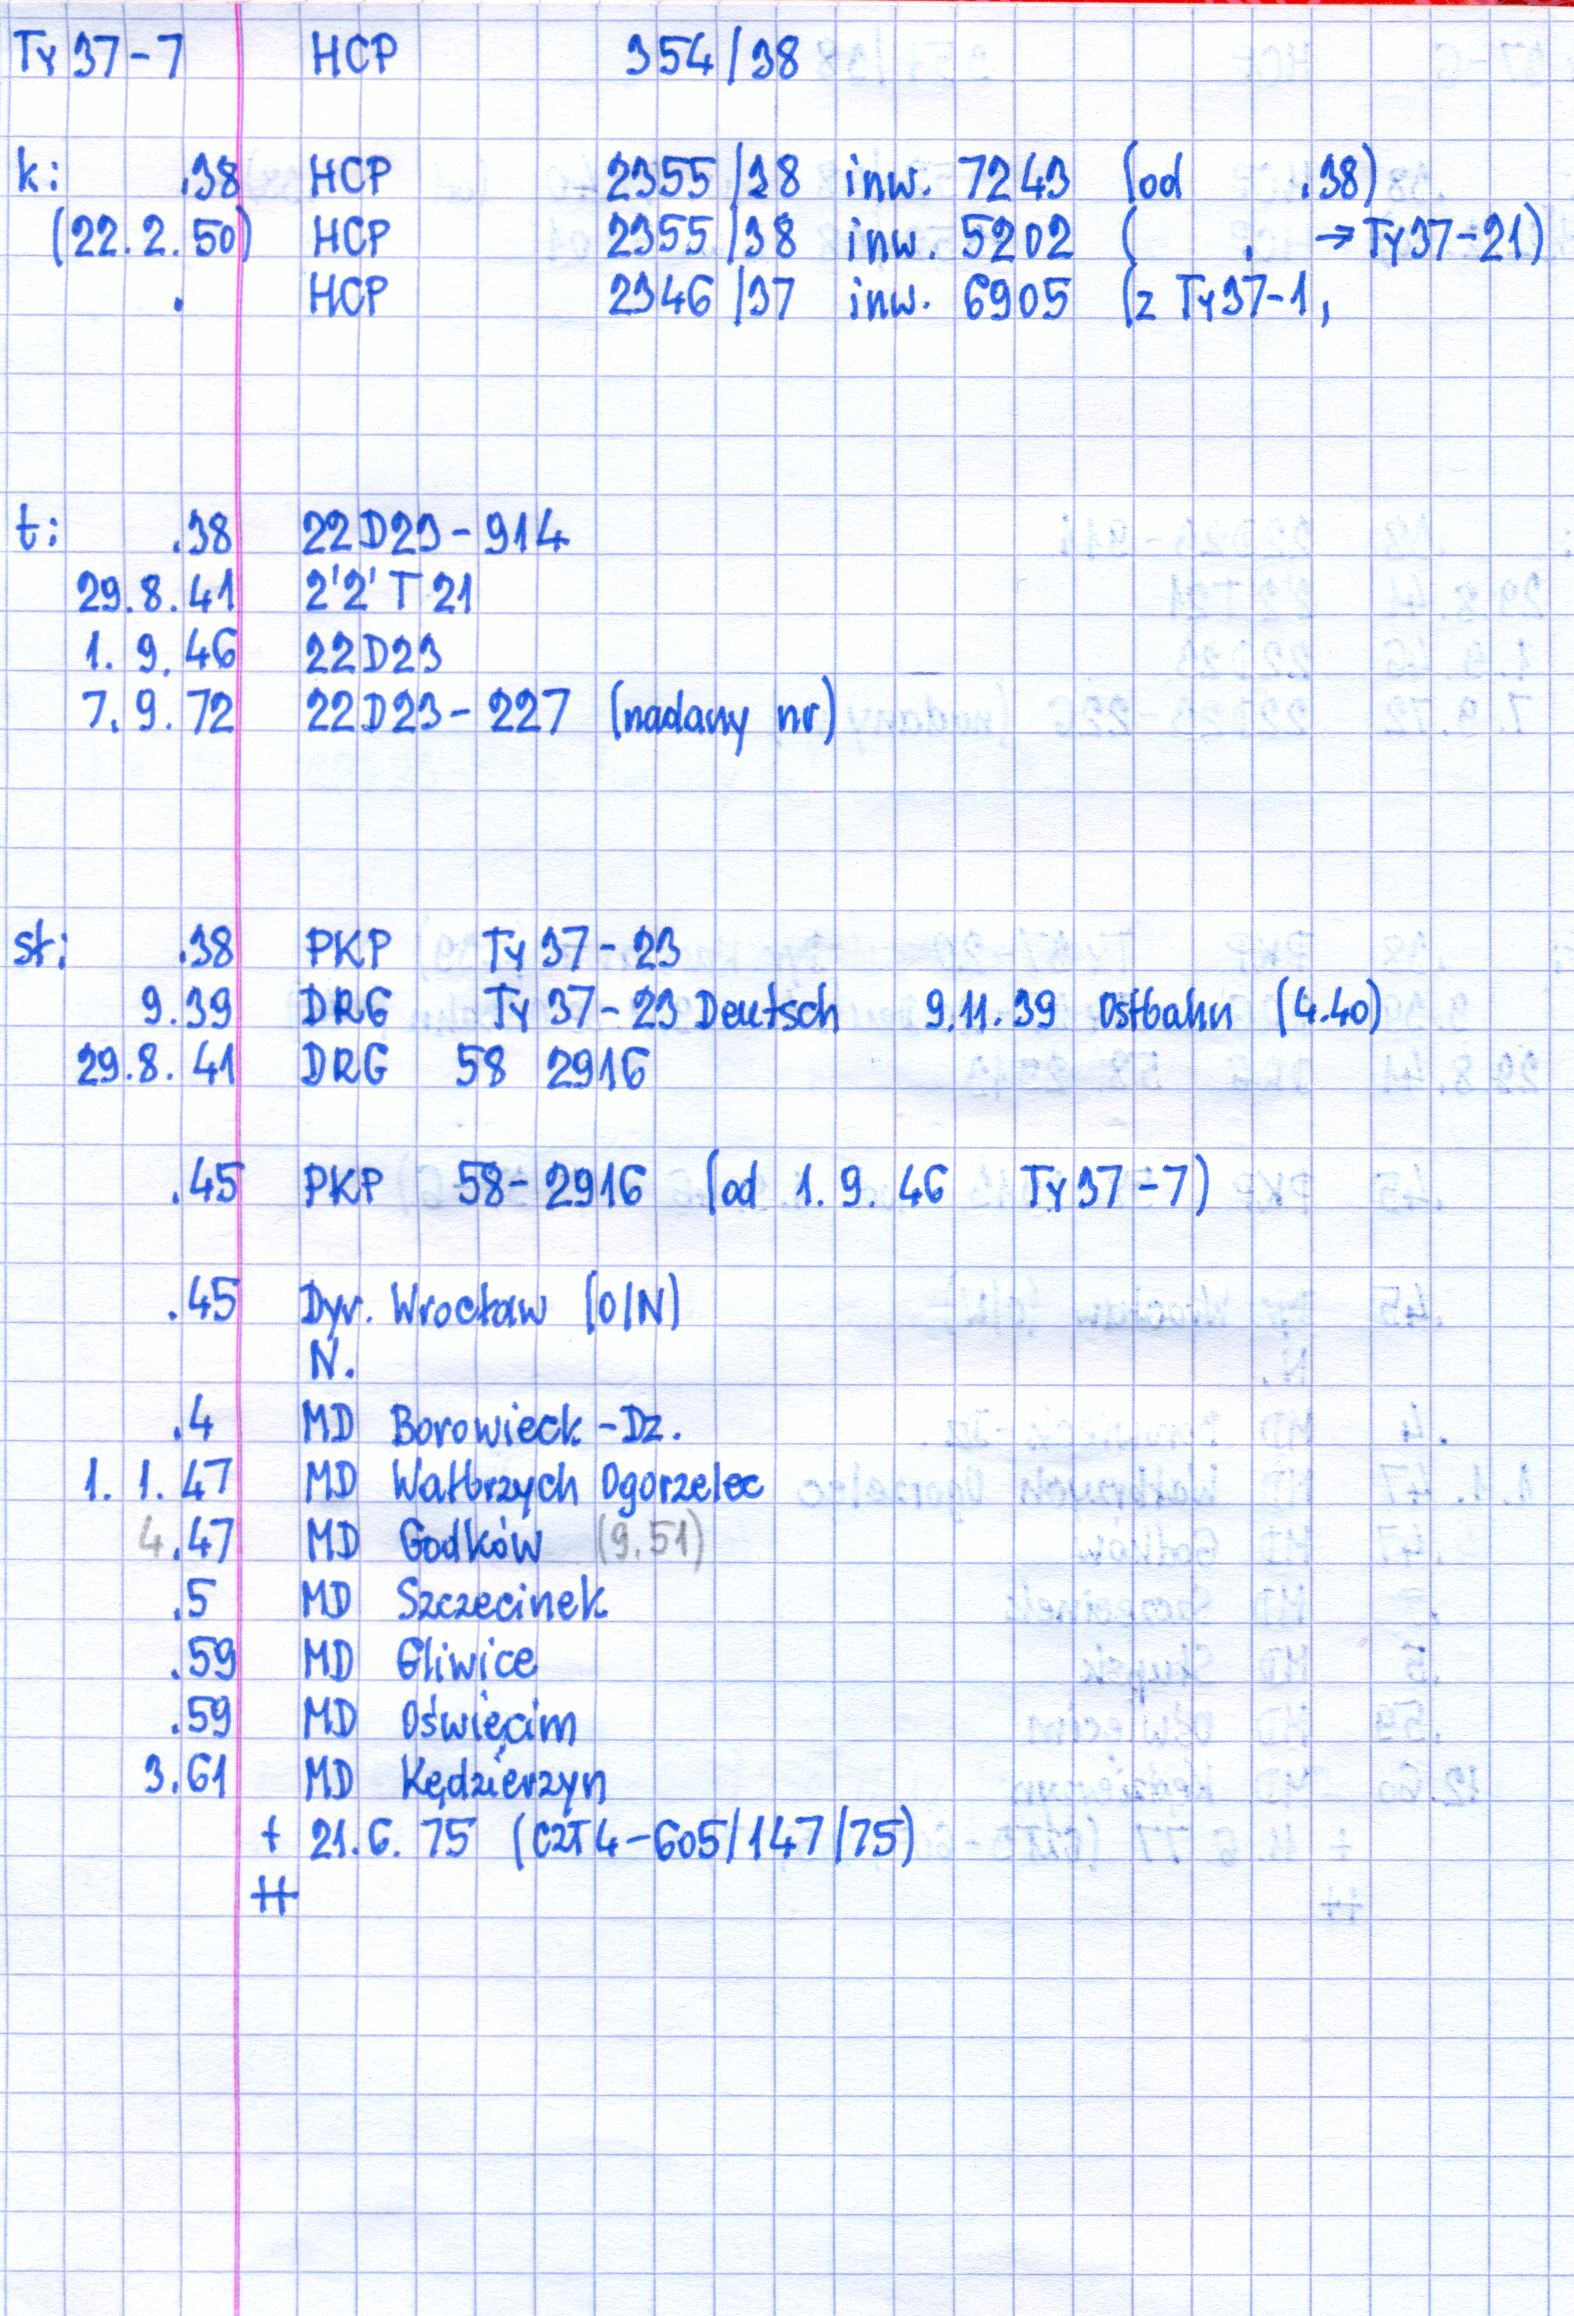 Ty37-7 HCP 354/38
k: .38 HCP 2355/38 inw. 7243 (od .38)
(22.2.50) HCP 2355/38 inw. 5202 ( . → Ty37-21)
. HCP 2346/37 inw. 6905 (z Ty37-1,
t: .38 22D23-914
29.8.41 2'2' T 21
1.9.46 22D23
7.9.72 22D23-227 (nadany nr)
st: .38 PKP Ty37-23
9.39 DRG Ty37-23 Deutsch 9.11.39 Ostbahn (4.40)
29.8.41 DRG 58 2916
.45 PKP 58-2916 (od 1.9.46 Ty37-7)
.45 Dyr. Wrocław (O/N)
N.
.4 MD Borowieck-Dz.
1.1.47 MD Wałbrzych Ogorzelec
4.47 MD Godków (9.51)
.5 MD Szczecinek
.59 MD Gliwice
.59 MD Oświęcim
3.61 MD Kędzierzyn
+ 21.6.75 (CZT4-605/147/75)
++